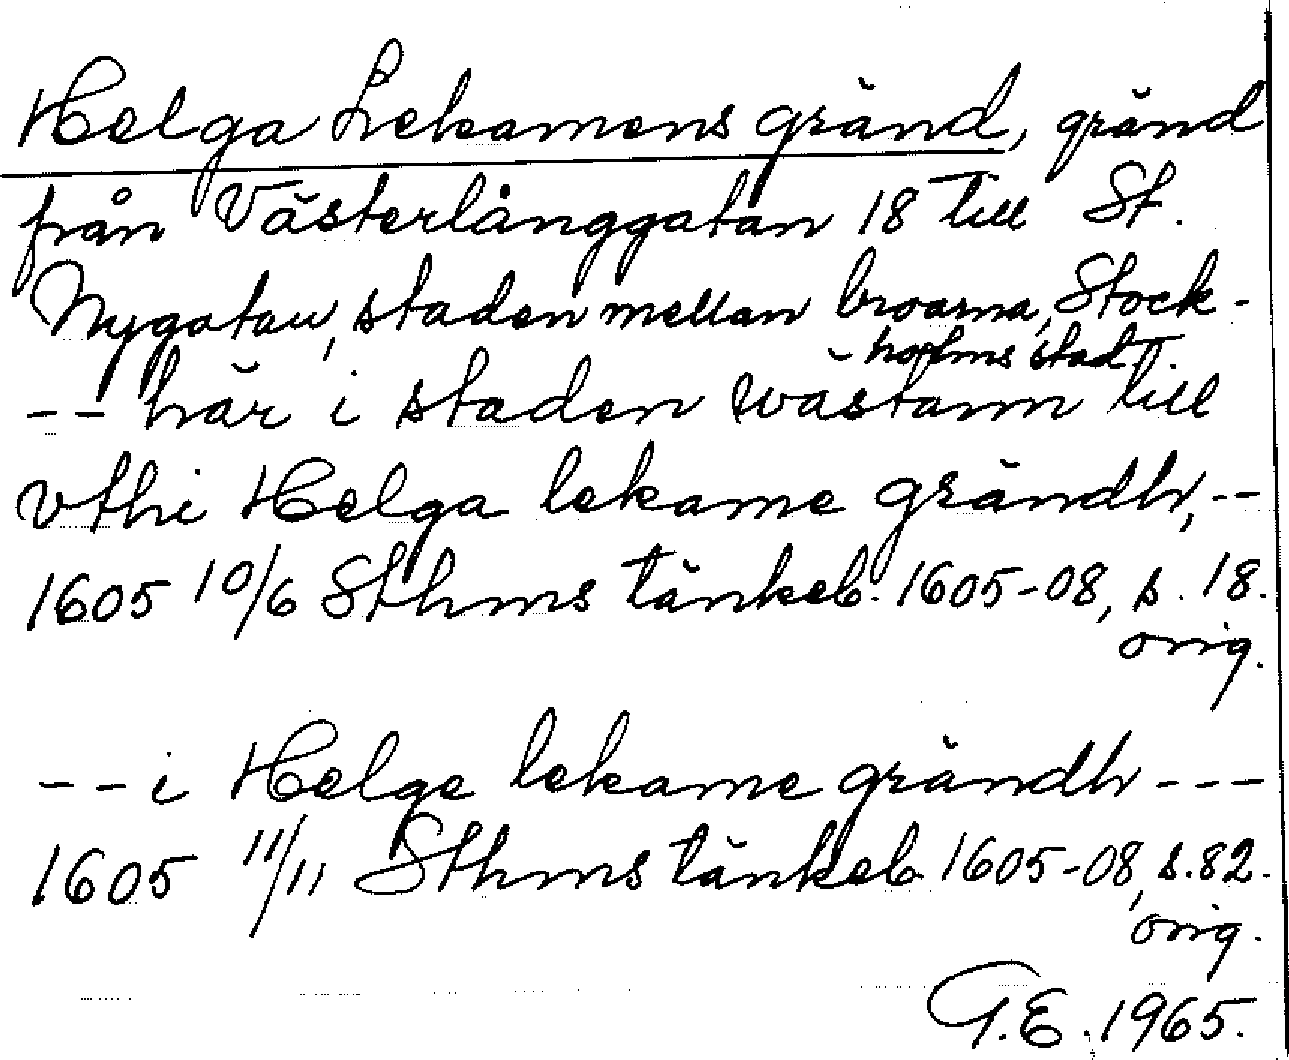 Helga Lekamens gränd, gränd
från Västerlånggatan 18 till St.
Nygatan, staden mellan broarna, Stock-
holms stad.
-- här i staden wästann till
vthi Helga lekame grändh, --
1605 10/6 Sthms tänkeb. 1605-08, s. 18.
orig.
-- i Helge lekame grändh ---
1605 11/11 Sthms tänkeb. 1605-08, s. 82.
orig.
G.E. 1965.